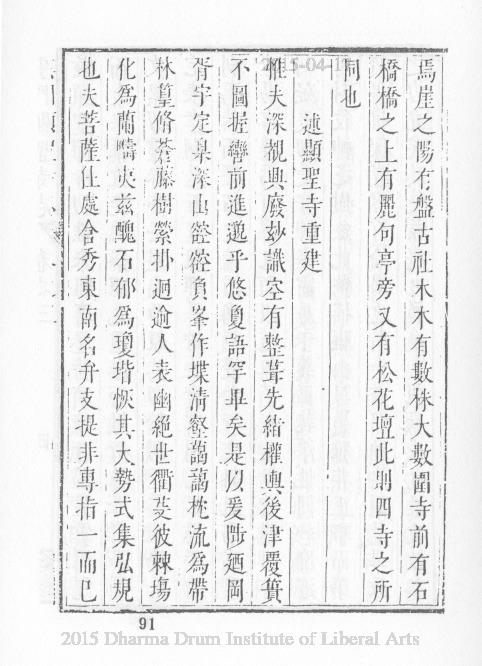 焉崖之陽有盤古社木木有數株大數圍寺前有石
橋橋之上有麗句亭旁又有松花壇此則四寺之所
同也
述顯聖寺重建
惟夫深覩興廢妙識空有整葺先緒權輿後津覆簣
不圖握轡前進邈乎悠夐語罕畢矣是以爰陟廼岡
胥宇定臬深山谾谾負峯作堞清壑藹藹枕流為帶
林篁脩蓯藤樹縈掛迴逾人表幽絕世衢芟彼棘場
化為蘭疇夷茲醜石郁為瓊堦恢其大勢式集弘規
也夫菩薩住處含秀東南名升支提非專指一而已
2015-04-1
91
2015 Dharma Drum Institute of Liberal Arts